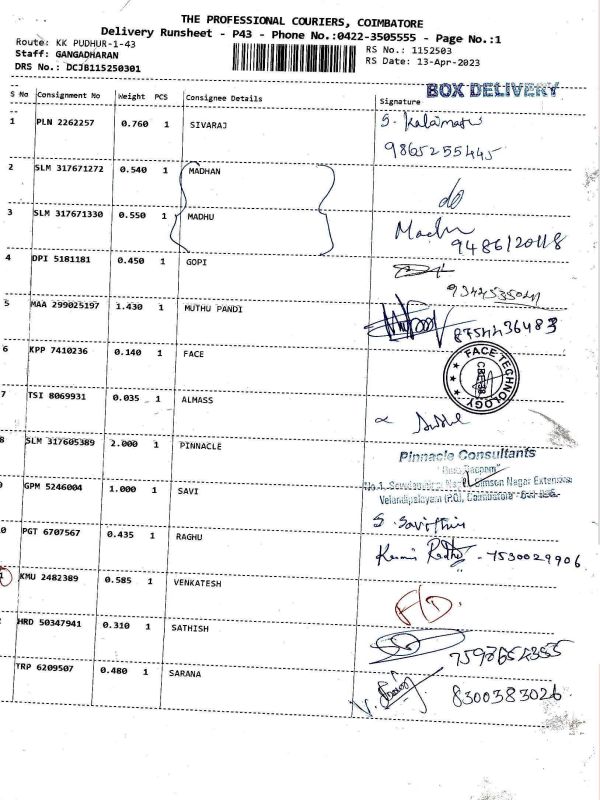 THE PROFESSIONAL COURIERS, COIMBATORE
Delivery Runsheet - P43 - Phone No.:0422-3505555 - Page No.:1
Route: KK PUDHUR-1-43
RS No.: 1152503
Staff: GANGADHARAN
RS Date: 13-Apr-2023
DRS No.: DCJB115250301
BOX DELIVERY
S No Consignment No Weight PCS Consignee Details Signature
1 PLN 2262257 0.760 1 SIVARAJ
9865255445
2 SLM 317671272 0.540 1 MADHAN
3 SLM 317671330 0.550 1 MADHU Madhu
9486120118
4 DPI 5181181 0.450 1 GOPI
5 MAA 299025197 1.430 1 MUTHU PANDI 8754436483
6 KPP 7410236 0.140 1 FACE
FACE TECHNOLOGY
7 TSI 8069931 0.035 1 ALMASS
8 SLM 317605389 2.000 1 PINNACLE
Pinnacle Consultants
Nagar Extension
Velandipalayam (P.O), Coimbatore
GPM 5246004 1.000 1 SAVI
0 PGT 6707567 0.435 1 RAGHU - 7530029906
1 KMU 2482389 0.585 1 VENKATESH
HRD 50347941 0.310 1 SATHISH
TRP 6209507 0.480 1 SARANA 8300383026